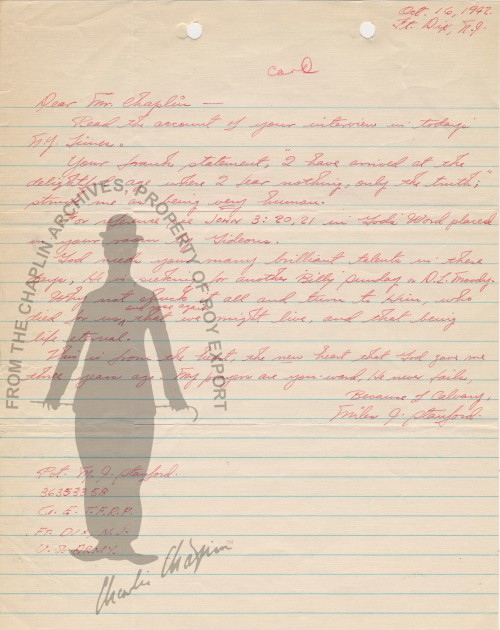 Oct. 16, 1942
Ft. Dix, N.J.
Card
Dear Mr. Chaplin —
Read the account of your interview in today's
N.Y. Times.
Your frank statement, "I have arrived at the
delightful age where I fear nothing, only the truth;"
struck me as being very human.
For reference is John 3:20,21 in God's Word placed
in your room by Gideons.
God your many brilliant talents in these
days, He is for another Billy Sunday or D.L. Moody.
Why not all and turn to Him, who
died for us, and rose again that we might live, and that being
life eternal.
This is from the heart, the new heart that God gave me
three years ago. My prayers are you-ward, He never fails,
Because of Calvary,
Miles J. Stanford.
Pvt. M. J. Stanford.
36353358
Co. E. T.F.R.P.
Ft. Dix, N.J.
U.S. ARMY.
FROM THE CHAPLIN ARCHIVES, PROPERTY OF ROY EXPORT
Charlie Chaplin™